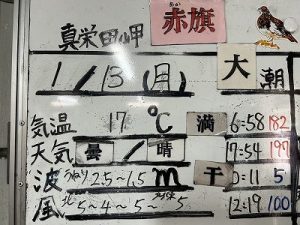 真栄田岬 赤旗
1/13(月) 大潮
気温 17℃ 満 6:58 182
天気 曇/晴 17:54 197
波 うねり 2.5~1.5m 干 0:11 5
風 北 5~4~5~ 5 12:19 100